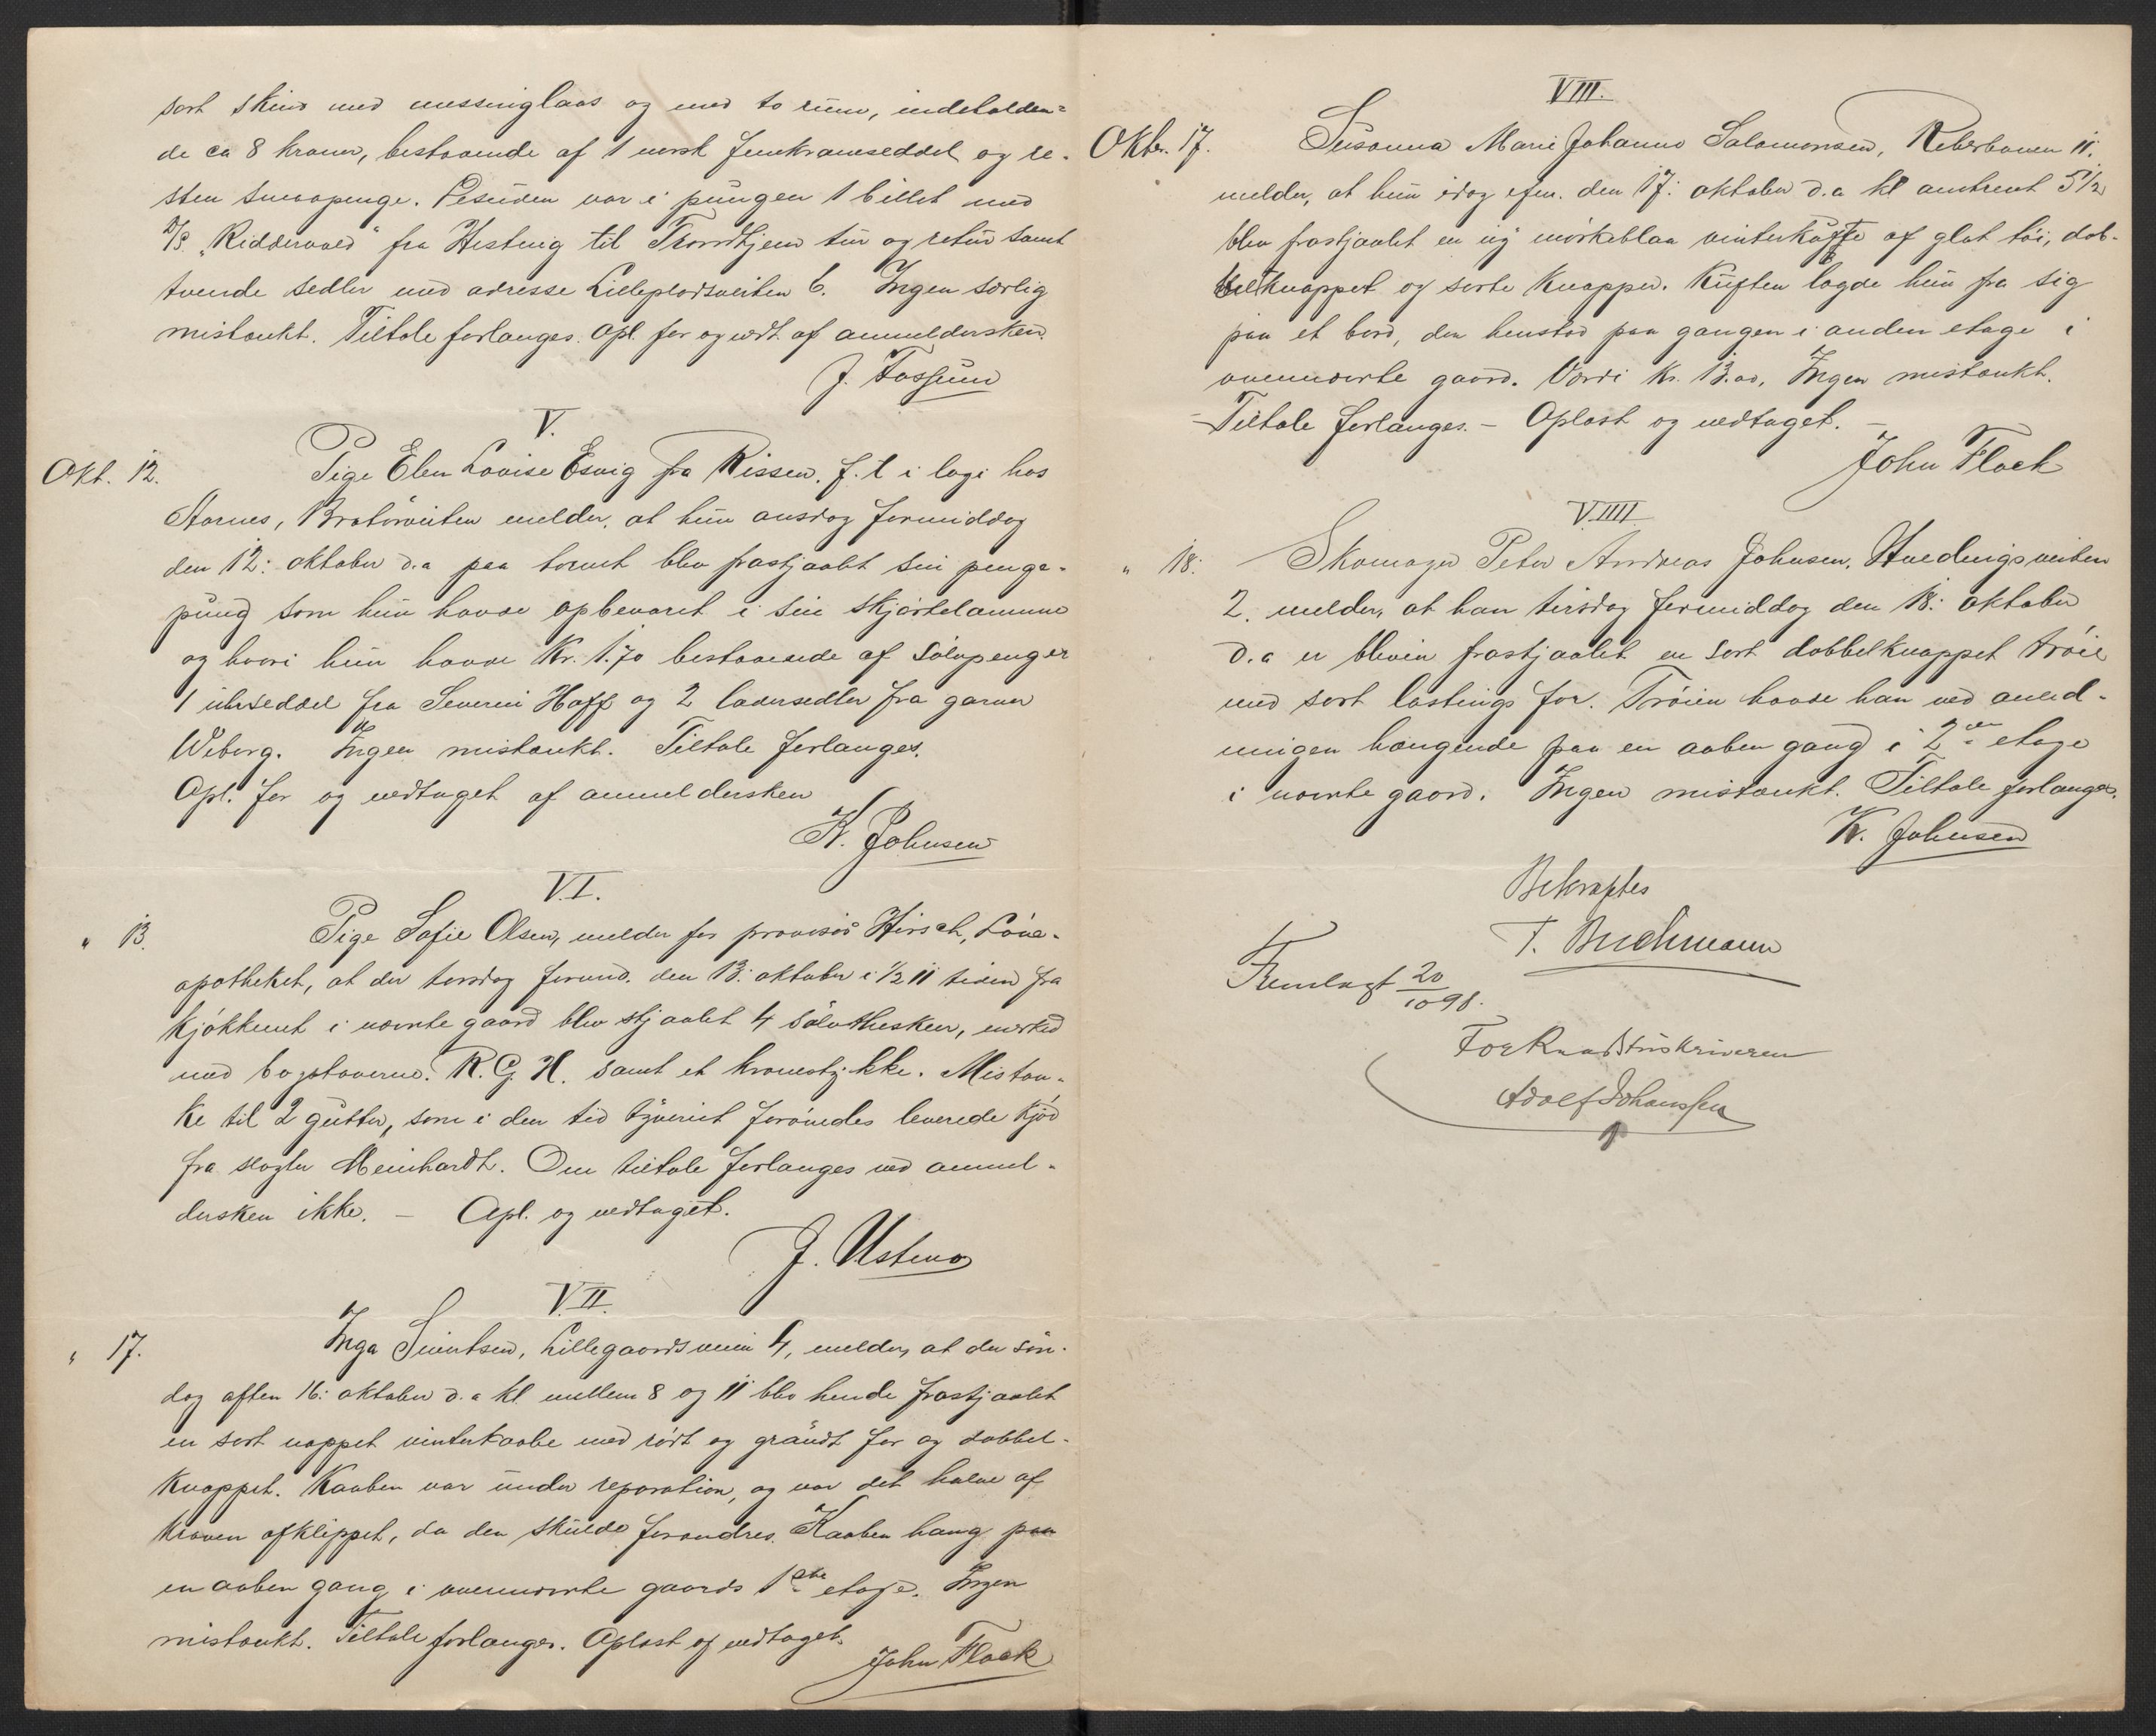 sort skind med messinglaas og med to rum, indeholden=
de ca 8 kroner, bestaaende af 1 norsk femkroneseddel og re-
sten smaapenge. Desuden var i pungen 1 billet med
D/S. "Riddervold" fra Hestvig til Trondhjem tur og retur samt
tvende sedler med adresse Lillepladsveiten 6. Ingen særlig
mistænkt. Tiltale forlanges. Opl. for og vedt. af anmeldersken.
J. Fossum
V.
Okt. 12. Pige Elen Lovise Esvig fra Rissen, f. t i logi hos
Aarnes, Bratørveiten melder, at hun onsdag formiddag
den 12: oktober d.a paa torvet blev frastjaalet sin penge-
pung som hun havde opbevaret i sin skjørtelomme
og hvori hun havde Kr. 1.70 bestaaende af sølvpenger
1 uhrseddel fra Severin Hoff og 2 lædersedler fra garver
Wiborg. Ingen mistænkt. Tiltale forlanges.
Opl. for og vedtaget af anmeldersken
K. Johnsen
VI.
" 13. Pige Sofie Olsen, melder for provisor Hirsch, Løve-
apotheket, at der torsdag formd. den 13: oktober i ½ 11 tiden fra
kjøkkenet i nævnte gaard blev stjaalet 4 sølvtheskeer, merket
med bogstaverne. R. G. H. samt et kronestykke. Mistan-
ke til 2 gutter, som i den tid tyveriet forøvedes leverede kjød
fra slagter Meinhardt. Om tiltale forlanges ved anmel-
dersken ikke. - Opl. og vedtaget.
J. Ustmo
VII.
" 17. Inga Sivertsen, Lillegaardsveien 4, melder, at der søn-
dag aften 16: oktober d.a kl. mellem 8 og 11 blev hende frastjaalet
en sort nappet vinterkaabe med rødt og graadt for og dobbel-
knappet. Kaaben var under reparation, og var det halve af
kraven afklippet, da den skulde forandres. Kaaben hang paa
en aaben gang i ovennævnte gaards 1ste etage. Ingen
mistænkt. Tiltale forlanges. Oplæst og vedtaget.
John Flack
VIII.
Oktbr. 17. Susanna Marie Johanne Salomonsen, Reberbanen 11.
melder, at hun idag efm. den 17: oktober d.a kl omtrent 5 1/2
blev frastjaalet en ny mørkeblaa vinterkufte af glat tøi, dob-
belknappet og sorte knapper. Kuften lagde hun fra sig
paa et bord, der henstod paa gangen i anden etage i
ovennævnte gaard. Værdi kr. 13.00. Ingen mistænkt.
- Tiltale forlanges. - Oplæst og vedtaget. -
John Flack
VIIII
" 18: Skomager Peter Andreas Johnsen, Hvedingsveiten
2. melder, at han tirsdag formiddag den 18: oktober
d.a er bleven frastjaalet en sort dobbelknappet trøie
med sort lastings for. Trøien havde han ved anled-
ningen hængende paa en aaben gang i 2den etage
i nævnte gaard. Ingen mistænkt. Tiltale forlanges.
K. Johnsen
Bekræftes
T. Buchmann
Fremlagt 20/10 98.
For Raadstuskriveren
Adolf Johanssen